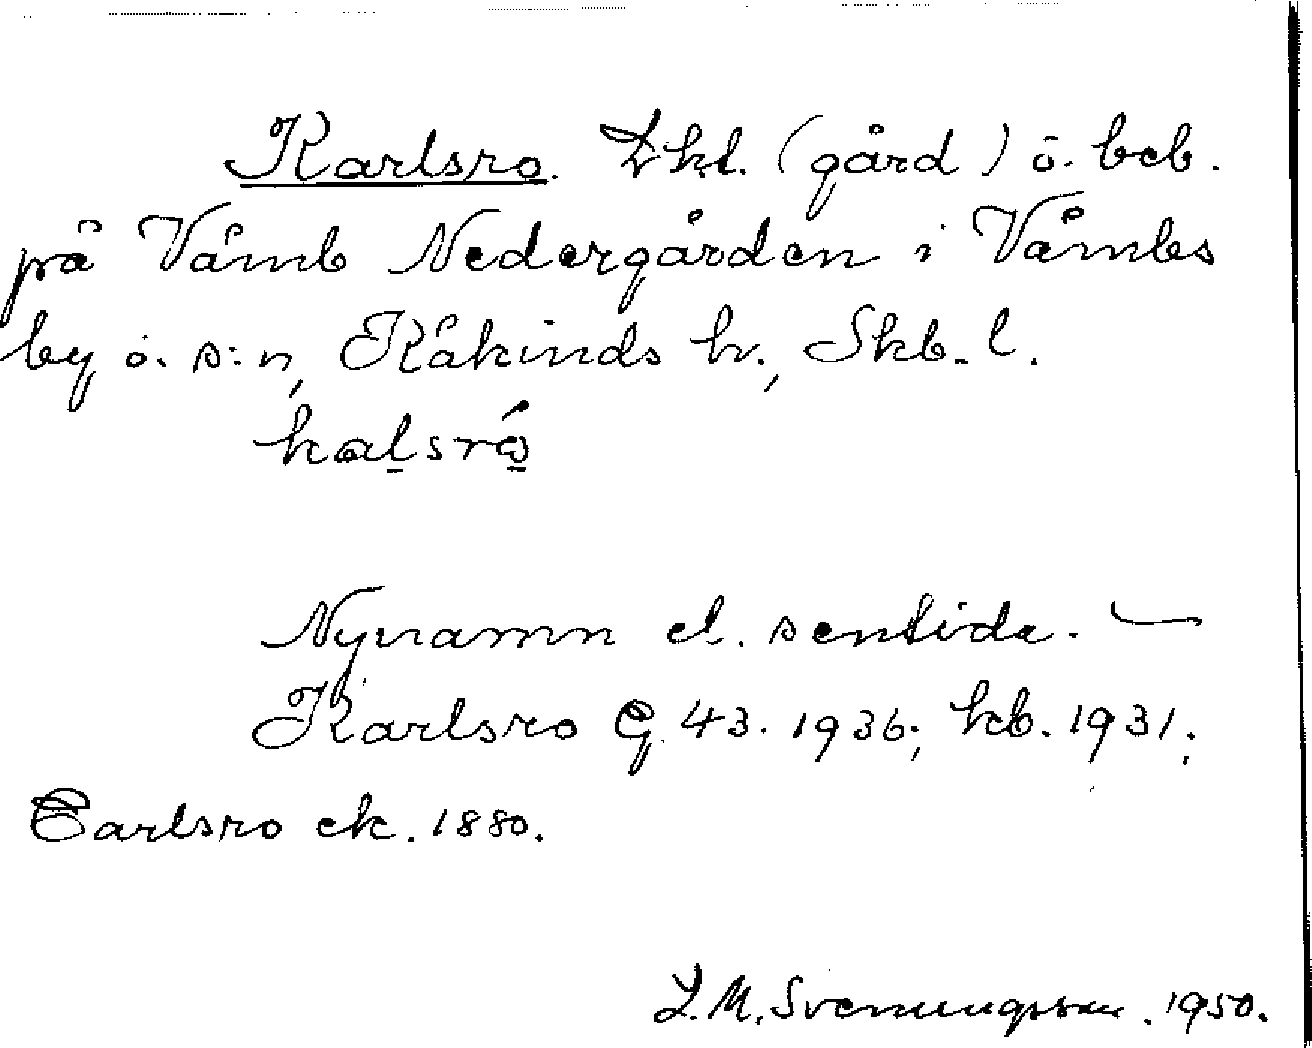 Karlsro. Lht. (gård) o. beb.
på Våmb Nedergården i Våmbs
by o. s:n, Kåkinds h., Skb. l.
kalsró
Nynamn el. sentida. —
Karlsro G. 43. 1936; kb. 1931;
Carlsro ek. 1880.
L. M. Svenungsson. 1950.